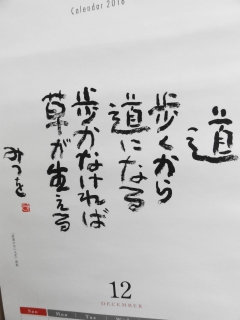 Calendar 2018
道
歩くから
道になる
歩かなければ
草が生える
みつを
12
DECEMBER
Sun Mon Tue